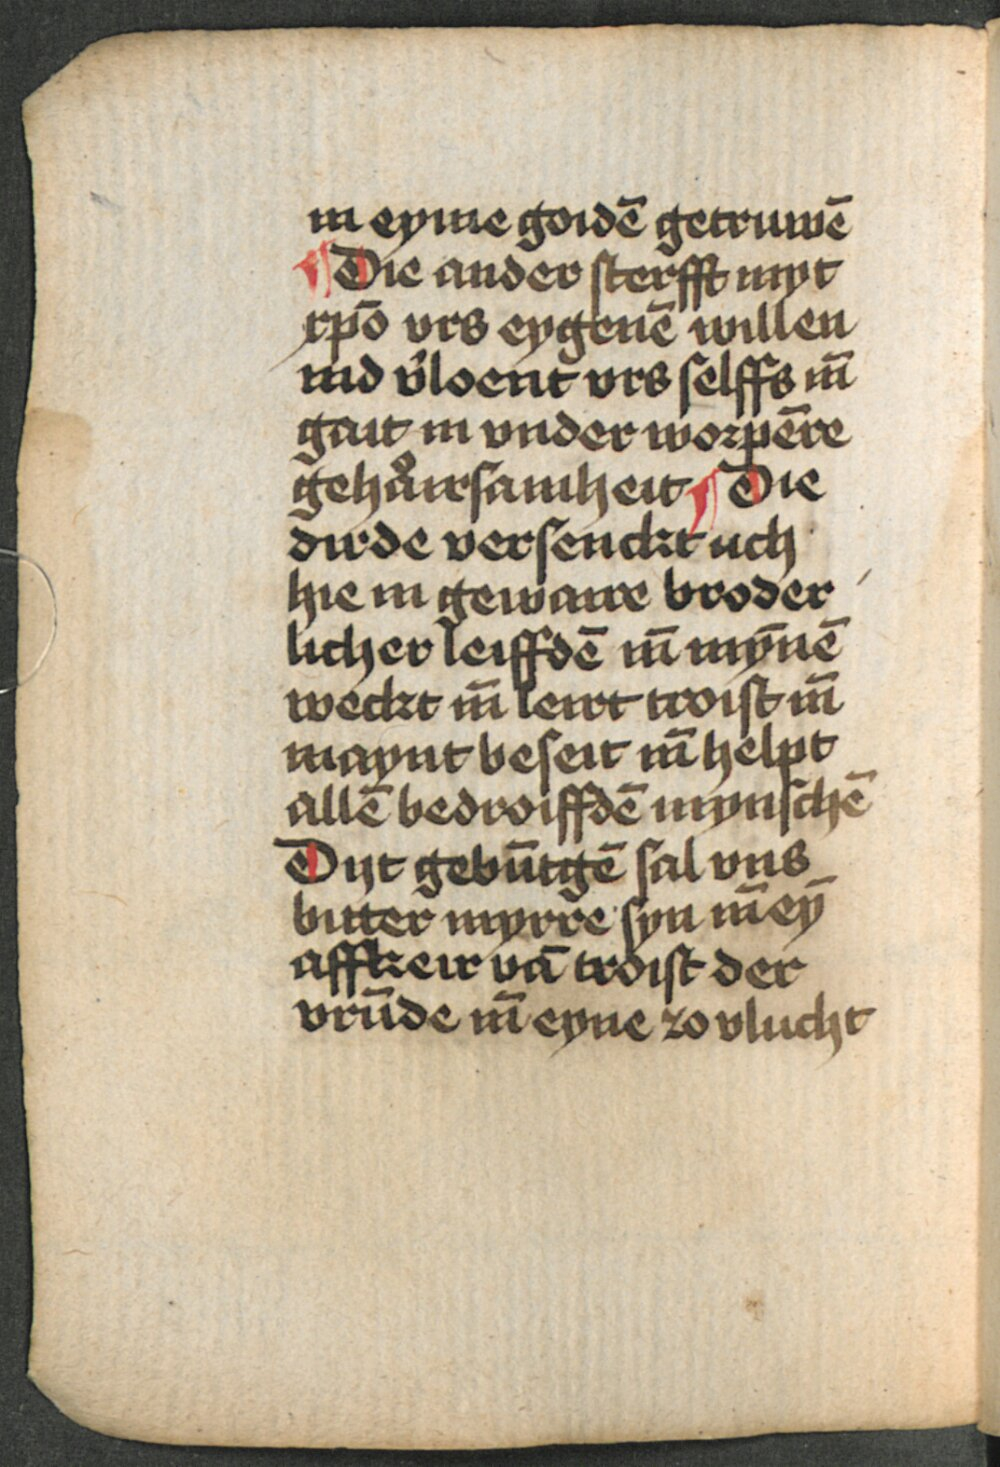 in eyme goidē getruwē
¶ Die ander sterfft myt
xpō vrs eygenē willen
ind v̓loent vrs selffs iñ
gait in vnder worpēre
gehoirsamheit ¶ Die
dirde versenckt uch
hie in gewaire broder
licher leiffdē iñ mȳnē
weckt iñ leirt troist iñ
maynt beseit iñ helpt
allē bedroiffdē mynschē
Dijt gebūtgē sal vns
bitter myrre syn iñ eȳ
affkeir vā troist der
vrūde iñ eyne zo vlucht